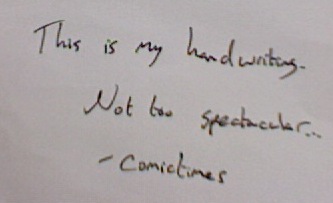 This is my handwriting.
Not too spectacular...
- Comictimes